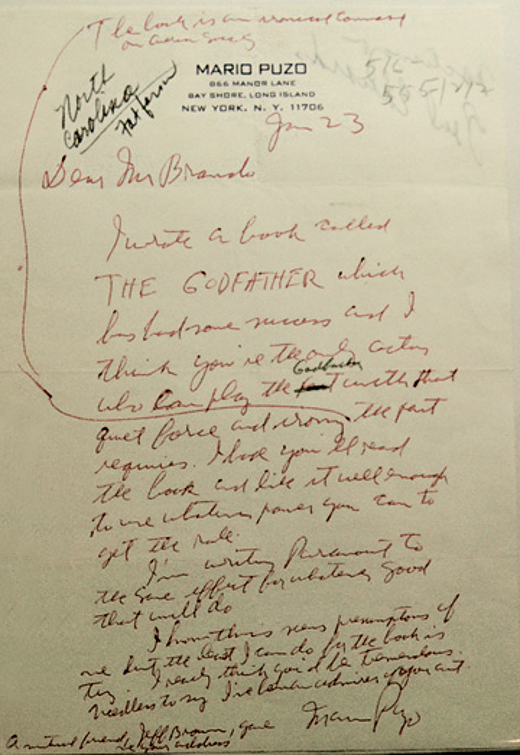 (The book is an ironical comment
on American Society
MARIO PUZO
866 MANOR LANE
BAY SHORE, LONG ISLAND
NEW YORK, N. Y. 11706
North
Carolina
Fat person
Jan 23
Dear Mr Brando
I wrote a book called
THE GODFATHER which
has had some success and I
think you're the only actor
Godfather
who can play the part with that
quiet force and irony the part
requires. I hope you'll read
the book and like it well enough
to use whatever power you can to
get the role.
I'm writing Paramount to
the same effect for whatever good
that will do
I know this was presumptous of
me but the best I can do for the book is
try. I really think you'd be tremendous.
Needless to say I've been an admirer of your art.
Mario Puzo
A mutual friend, Jeff Brown, gave
me your address